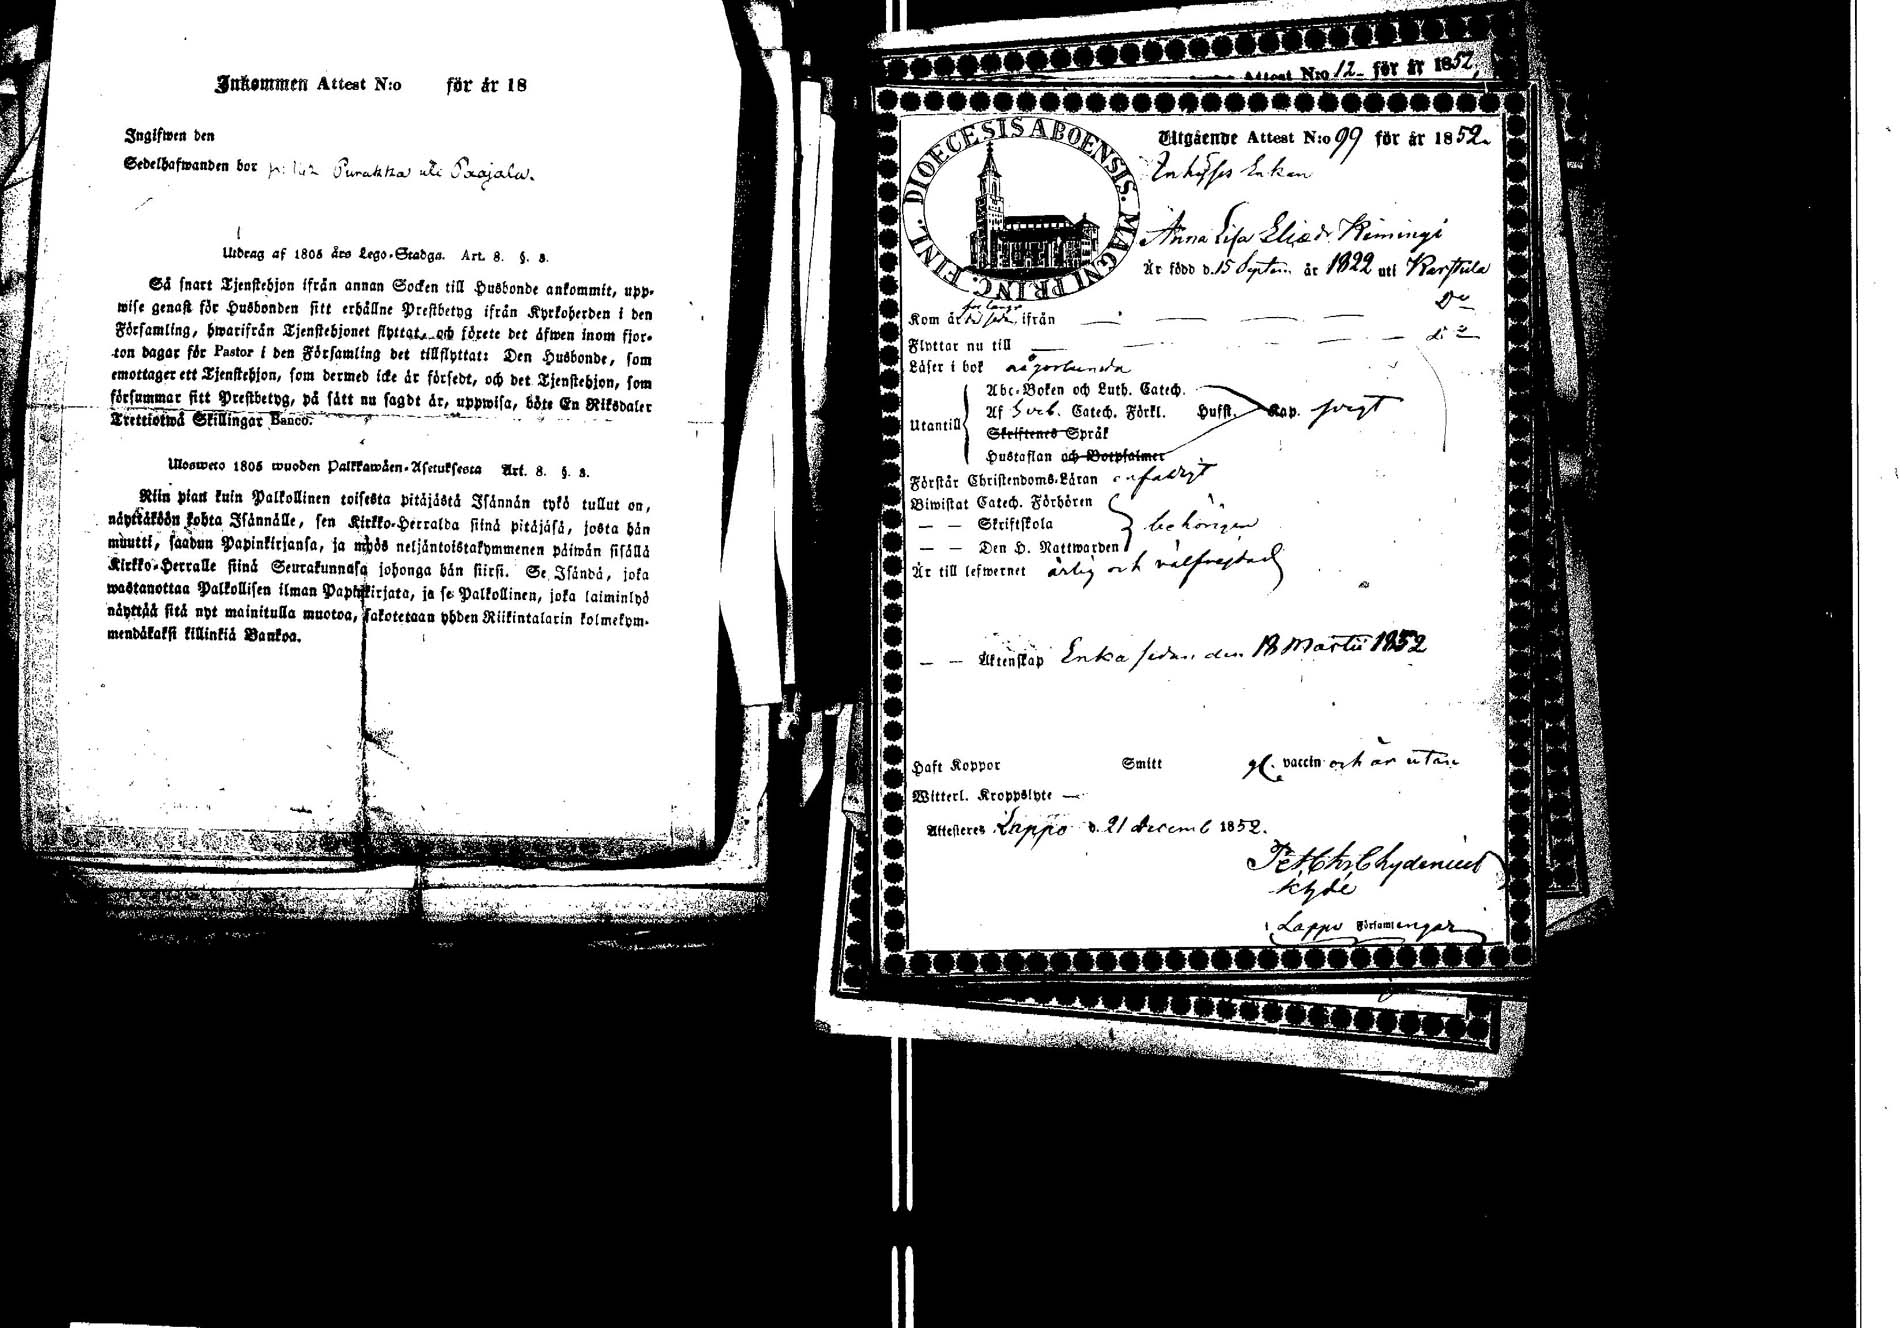 Inkommen Attest N:o för år 18
Ingifwen den
Sedelhafwanden bor Purakka uti Paajala.
Utdrag af 1805 års Lego-Stadga. Art. 8. §. 3.
Så snart Tjenstehjon ifrån annan Socken till Husbonde ankommit, upp-
wise genast för Husbonden sitt erhållne Prestbetyg ifrån Kyrkoherden i den
Församling, hwarifrån Tjenstehjonet flyttat, och förete det äfwen inom fjor-
ton dagar för Pastor i den Församling det tillflyttat: Den Husbonde, som
emottager ett Tjenstehjon, som dermed icke är försedt, och det Tjenstehjon, som
försummar sitt Prestbetyg, på sätt nu sagdt är, uppwisa, böte En Riksdaler
Trettiotwå Skillingar Banco.
Ulosweto 1805 wuoden Palkkawäen-Asetuksesta Art. 8. §. 3.
Niin pian kuin Palkollinen toisesta pitäjästä Isännän tykö tullut on,
näyttäköön kohta Isännälle, sen Kirkko-Herralda siinä pitäjäsä, josta hän
muutti, saadun Papinkirjansa, ja myös neljäntoistakymmenen päiwän sisällä
Kirkko-Herralle siinä Seurakunnasa johonga hän siirsi. Se Isändä, joka
wastanottaa Palkollisen ilman Papinkirjata, ja se Palkollinen, joka laiminlyö
näyttää sitä nyt mainitulla muotoa, sakotetaan yhden Riikintalarin kolmekym-
mendäkaksi killinkiä Bankoa.
Attest N:o 12 för år 1852,
DIOECESIS ABOENSIS. MAGNI PRINC. FINL.
Utgående Attest N:o 99 för år 1852.
Inhyses Enkan
Anna Lisa Eliædr Kimingi
Är född d. 15 Septem. år 1822 uti Karstula
Kom år ifrån — — — Do
Flyttar nu till — — — do
Läser i bok någorlunda
Utantill
Abc-Boken och Luth. Catech.
Af Sveb. Catech. Förkl. Husft. Kap. svagt
Skriftenes Språk
Hustaflan och Botpsalmer
Förstår Christendoms-Läran enfaldigt
Biwistat Catech. Förhören
— — Skriftskola behörigen
— — Den H. Nattwarden
Är till lefwernet ärlig och välfrejdad
— — Äktenskap Enka sedan den 18 Martii 1852
Haft Koppor Smitt vaccin och är utan
Witterl. Kroppslyte —
Attesteras Lappo d. 21 decemb 1852.
Pet. Chr. Chydenius
Khde
i Lappo Församlingar